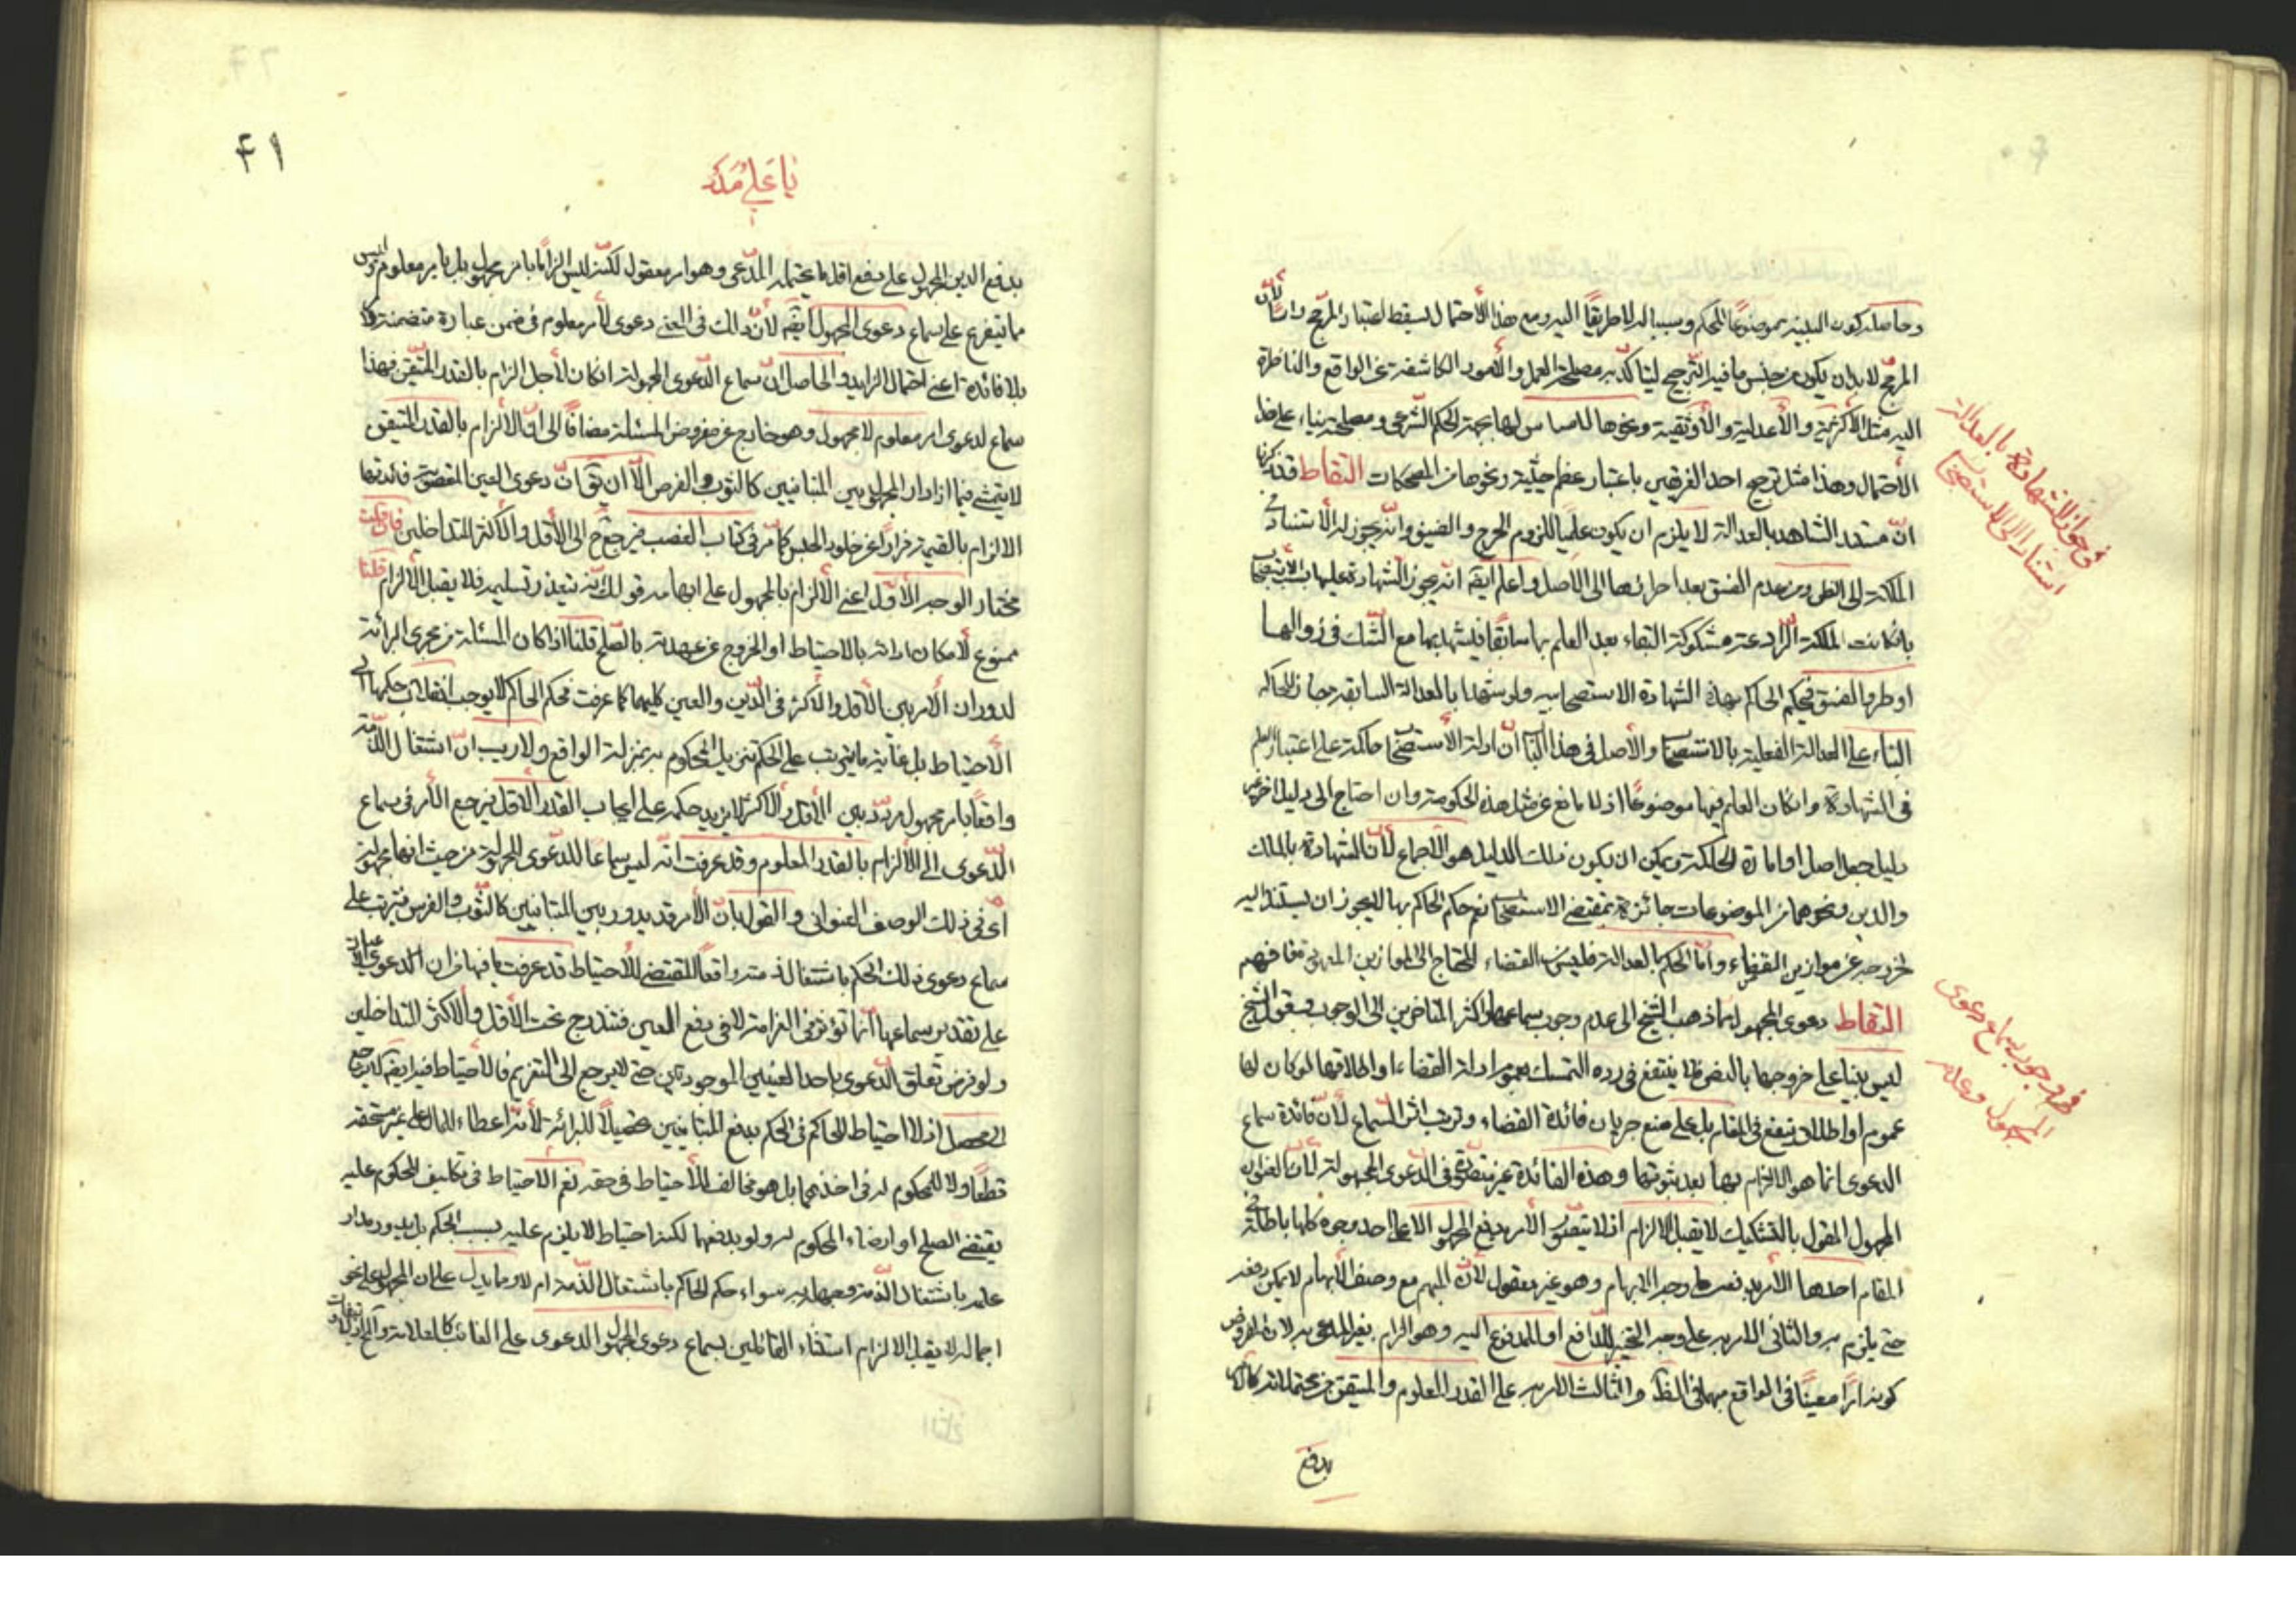 وحاصله كون البينة موضوعا للحكم وسببا له لا طريقا اليه ومع هذا الأحتمال يسقط اعتبار المرجح راسا لأن
المرجح لا بد ان يكون من جنس ما فيه الترجيح ليتاكد به مصلحة العمل والأمور الكاشفة عن الواقع والناظرة
اليه مثل الأكثرية والأعدلية والأوثقية ونحوها لا مساس لها بجهة الحكم الشرعي ومصلحته بناء على هذا
الأحتمال وهذا مثل ترجيح احد الفرضين باعتبار عظم جثته ونحوها من المضحكات التقاط قد ذكرنا
ان مستند الشاهد بالعدالة لا يلزم ان يكون علميا للزوم الحرج والضيق وانه يجوز له الأستناد في
الملكة الى الظن وفي عدم الفسق بعد احرازها الى الأصل واعلم ايضا انه يجوز الشهادة عليها بالاستصحاب
بان كانت الملكة الرادعة مشكوكة البقاء بعد العلم بها سابقا فيشهد بها مع الشك في زوالها
او طرو الفسق فيحكم الحاكم بهذه الشهادة الاستصحابية ولو شهدا بالعدالة السابقة جاز للحاكم
البناء على العدالة الفعلية بالاستصحاب والأصل في هذا الباب ان ادلة الأستصحاب حاكمة على اعتبار العلم
في الشهادة وان كان العلم فيها موضوعا اذ لا مانع عن مثل هذه الحكومة وان احتاج الى دليل اخر غير
دليل جعل اصل او امارة الحاكمة ويمكن ان يكون ذلك الدليل هو الأجماع لأن الشهادة بالملك
والدين ونحوهما من الموضوعات جائزة بمقتضى الاستصحاب نعم حكم الحاكم بها لا يجوز ان يستند اليه
لخروجه عن موازين القضاء واما الحكم بالعدالة فليس من القضاء المحتاج الى الموازين المعهودة فافهم
التقاط دعوى المجهول مما ذهب الشيخ الى عدم وجوب سماعها واكثر المتاخرين الى الوجوب وقول الشيخ
ليس بينا على خروجها بالنص فلا ينتفع في رده التمسك بعموم ادلة القضاء او اطلاقها لو كان لها
عموم او اطلاق ينفع في المقام بل على منع جريان فائدة القضاء وترتب اثر السماع لأن فائدة سماع
الدعوى انما هو الالزام بها بعد ثبوتها وهذه الفائدة غير متصورة في الدعوى المجهولة لأن العنوان
المجهول المقول بالتشكيك لا يقبل الالزام اذ لا يتصور الأمر بدفع المجهول الا على احد وجوه كلها باطلة في
المقام احدها الأمر بدفعه على وجه الابهام وهو غير معقول لأن المبهم مع وصف الأبهام لا يمكن دفعه
حتى يلزم به والثاني الامر به على وجه التخيير للدافع او للمدفوع اليه وهو الزام بغير المدعى به لان المفروض
كونه امرا معينا في الواقع مبهما في الظاهر والثالث الامر به على القدر المعلوم والمتيقن من محتملاته كالأمر
بدفع
في جواز الشهادة بالعدالة
استنادا الى الاستصحاب
في وجوب سماع دعوى
المجهول وعدمه
۴۱
يا علي مدد
بدفع الدين المجهول على دفع اقل ما يحتمله المدعى وهو امر معقول لكنه ليس الزاما بامر مجهول بل بامر معلوم وليس
مما يتفرع على سماع دعوى المجهول ايضا لأن ذلك في المعنى دعوى لأمر معلوم في ضمن عبارة متضمنة
بلا فائدة اعني احتمال الزايد والحاصل ان سماع الدعوى المجهولة ان كان لأجل الزام بالقدر المتيقن فهذا
سماع لدعوى امر معلوم لا مجهول وهو خارج عن مفروض المسئلة مضافا الى ان الألزام بالقدر المتيقن
لا يتمشى فيما اذا دار المجهول بين المتباينين كالثوب والفرس الا ان يقال ان دعوى العين المغصوبة فائدتها
الالزام بالقيمة فرارا عن خلود الحبس كما مر في كتاب الغصب فيرجع ح الى الأقل والأكثر المتداخلين فان قلت
مختار الوجه الأول اعني الألزام بالمجهول على ابهامه قولك انه يتعذر تسليمه فلا يقبل الألزام قلنا
ممنوع لأمكان ادائه بالاحتياط او الخروج عن عهدته بالصلح قلنا اذا كان المسئلة من مجرى البرائة
لدوران الأمر بين الأقل والأكثر في الدين والعين كليهما كما عرفت فحكم الحاكم لا يوجب انقلاب حكمها الى
الأحتياط بل غاية ما يترتب على الحكم تنزيل المحكوم به بمنزلة الواقع ولا ريب ان اشتغال الذمة
واقعا بامر مجهول مردد بين الأقل والأكثر لا يزيد حكمه على ايجاب القدر الاقل فيرجع الأمر في سماع
الدعوى الى الألزام بالقدر المعلوم وقد عرفت انه ليس سماعا للدعوى المجهولة من حيث انها مجهولة
اى في ذلك الوصف العنواني والقول بان الأمر قد يدور بين المتباينين كالثوب والفرس فيترتب على
سماع دعوى ذلك الحكم باشتغال ذمته واقعا المقتضي للأحتياط قد عرفت ما فيها فان الدعوى
على تقدير سماعها انما تؤثر في الغرامة لا في دفع العين فتندرج تحت الأقل والأكثر المتداخلين
ولو فرض تعلق الدعوى باحد العينين الموجودتين حتى لا يرجع الى التغريم فالاحتياط فيه ايضا
اذ لا احتياط للحاكم في الحكم بدفع المتباينين تحصيلا للبرائة لأنه اعطاء للمال على غير مستحقه
قطعا ولا للمحكوم له في اخذهما بل هو مخالف للأحتياط في حقه نعم الاحتياط في تكليف المحكوم عليه
يقتضي الصلح او ارضاء المحكوم له ولو بدفعهما لكنه احتياط لا يلزم عليه بسبب الحكم بل يدور مدار
علمه باشتغال الذمة وجهله به سواء حكم الحاكم باشتغال الذمة ام لا ومما يدل على ان المجهول على نحو
اجماله لا يقبل الالزام استثناء القائلين بسماع دعوى المجهول الدعوى على الغائب